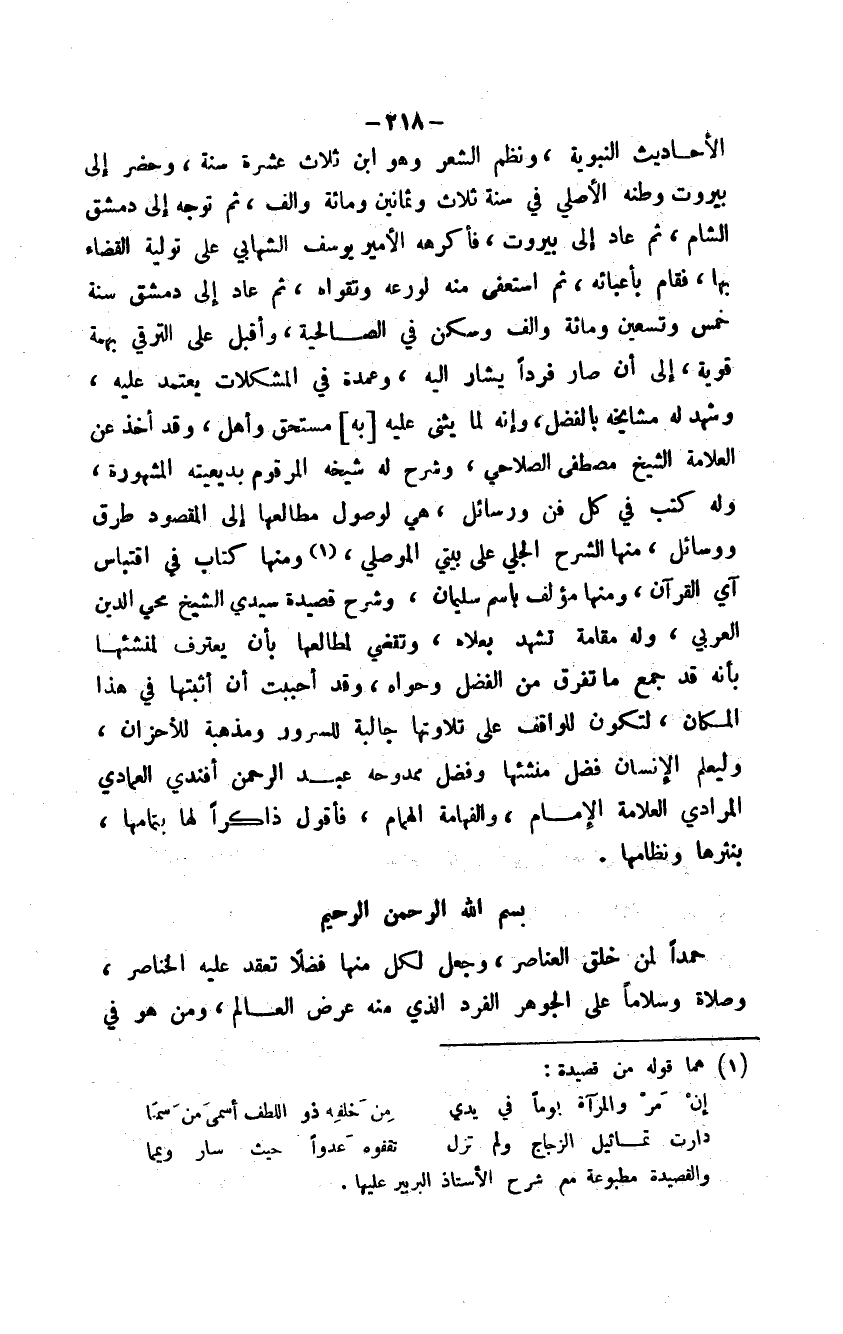 -٢١٨-
الأحـاديث النبوية ، ونظم الشعر وهو ابن ثلاث عشرة سنة ، وحضر إلى
بيروت وطنه الأصلي في سنة ثلاث وثمانين ومائة والف ، ثم توجه إلى دمشق
الشام ، ثم عاد إلى بيروت ، فأكرهه الأمير يوسف الشهابي على تولية القضاء
بها ، فقام بأعبائه ، ثم استعفى منه لورعه وتقواه ، ثم عاد إلى دمشق سنة
خمس وتسعين ومائة والف وسكن في الصـالحية ، وأقبل على الترقي بهمة
قوية ، إلى أن صار فرداً يشار اليه ، وعمدة في المشكلات يعتمد عليه ،
وشهد له مشايخه بالفضل ، وإنه لما يثنى عليه [به] مستحق وأهل ، وقد أخذ عن
العلامة الشيخ مصطفى الصلاحي ، وشرح له شيخه المرقوم بديعيته المشهورة ،
وله كتب في كل فن ورسائل ، هي لوصول مطالعها إلى المقصود طرق
ووسائل ، منها الشرح الجلي على بيتي الموصلي ، (١) ومنها كتاب في اقتباس
آي القرآن ، ومنها مؤلف باسم سليمان ، وشرح قصيدة سيدي الشيخ محي الدين
العربي ، وله مقامة تشهد بعلاه ، وتقضي لمطالعها بأن يعترف لمنشئهـا
بأنه قد جمع ما تفرق من الفضل وحواه ، وقد أحببت أن أثبتها في هذا
المـكان ، لتكون للواقف على تلاوتها جالبة للسرور ومذهبة للأحزان ،
وليعلم الإنسان فضل منشئها وفضل ممدوحه عبـد الرحمن أفندي العمادي
المرادي العلامة الإمـام ، والفهامة الهمام ، فأقول ذاكراً لها بتمامها ،
بنثرها ونظامها .
بسم الله الرحمن الرحيم
حمداً لمن خلق العناصر ، وجعل لكل منها فضلًا تعقد عليه الخناصر ،
وصلاة وسلاماً على الجوهر الفرد الذي منه عرض العـالم ، ومن هو في
(١) هما قوله من قصيدة :
إنْ مَرّ والمرآة يوماً في يدي مِن خَلفِه ذو اللطف أسمى مَن سَمَا
دارت تمـاثيل الزجاج ولم تزل تقفوه عَدواً حيث سار ويمما
والقصيدة مطبوعة مع شرح الأستاذ البربير عليها .